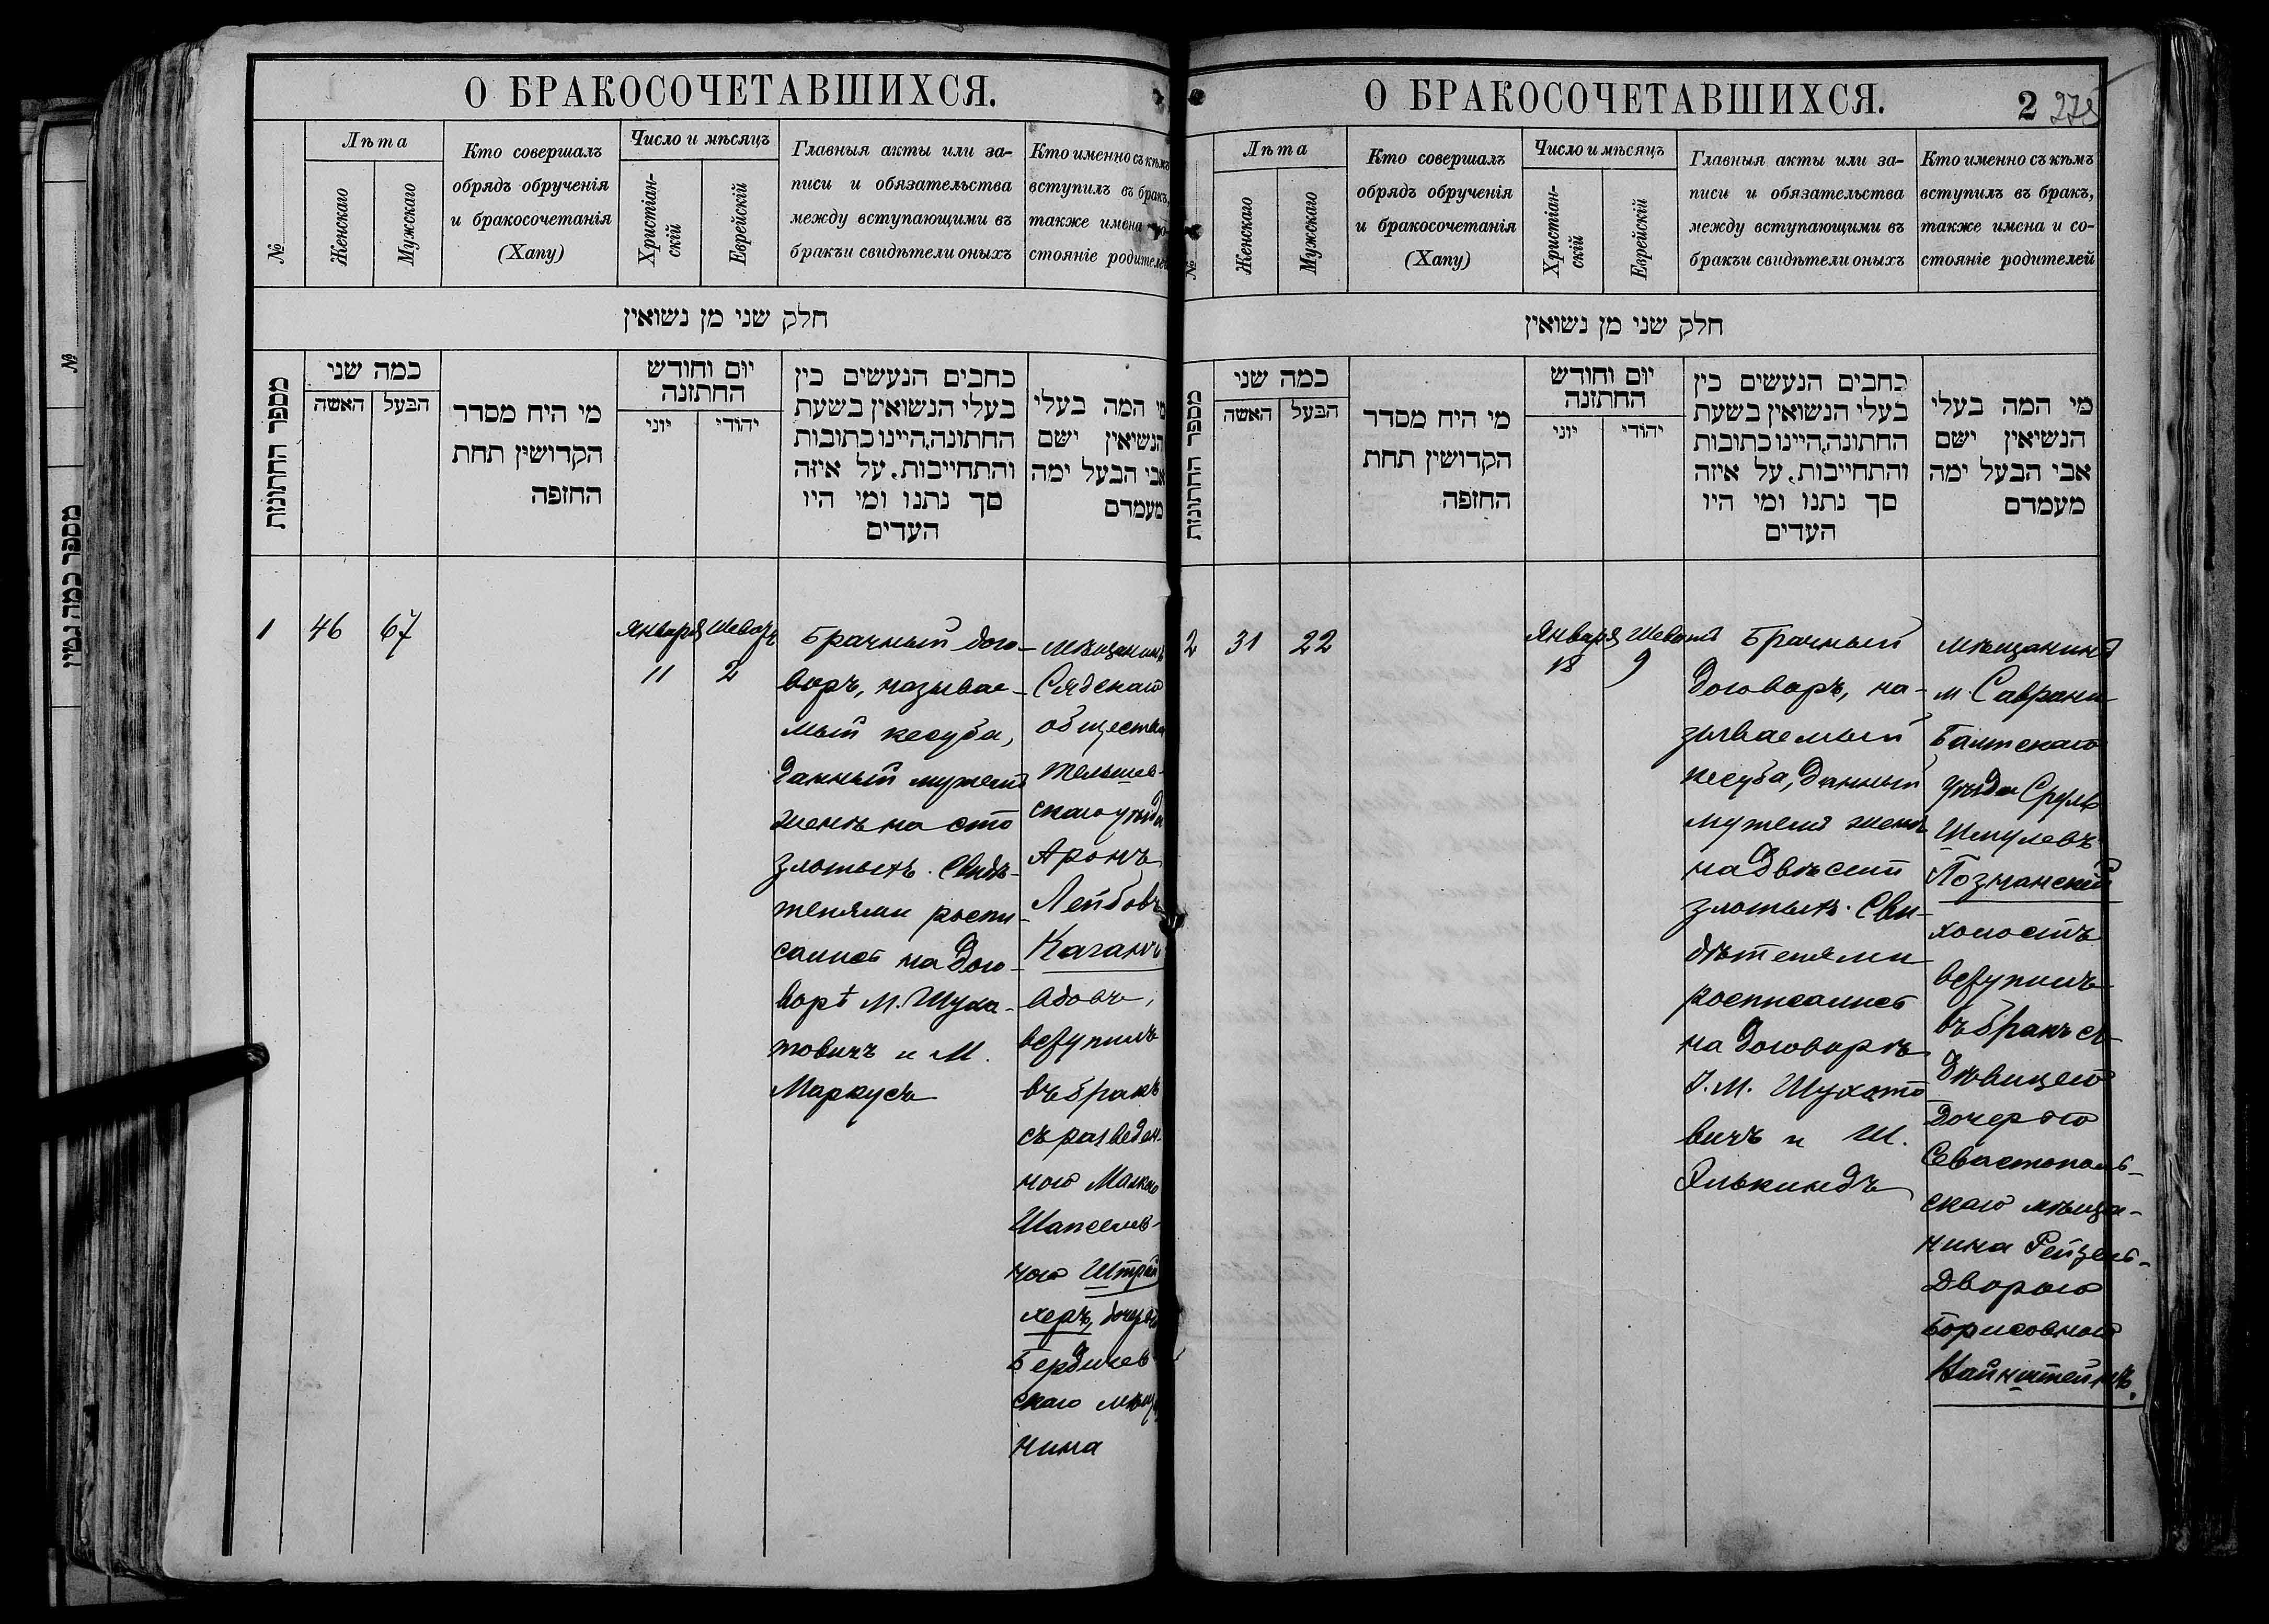 О БРАКОСОЧЕТАВШИХСЯ.
№
Лѣта
Женскаго
Мужскаго
Кто совершалъ
обрядъ обрученія
и бракосочетанія
(Хапу)
Число и мѣсяцъ
Христіан-
скій
Еврейскій
Главныя акты или за-
писи и обязательства
между вступающими въ
бракъи свидѣтели оныхъ
Кто именно съ кѣмъ
вступилъ въ бракъ,
также имена
стояніе родителей
חלק שני מן נשואין
מספר החתונות
כמה שני
האשה
הבעל
מי היח מסדר
הקדושין תחת
החזפה
יום וחודש
החתזנה
יוני
יהודי
כחבים הנעשים כין
בעלי הנשואין בשעת
החתונה,היינו כתובות
והתחייבות. על איזה
סך נתנו ומי היו
העדים
מי המה בעלי
הנשיאין ישם
אבי הבעל ימה
מעמדם
1
46
67
Января
11
Шевотъ
2
Брачный дого-
воръ, называе-
мый кесуба,
данный мужемъ
женѣ на сто
злотыхъ. Свидѣ-
телями роспи-
сались на дого-
ворѣ М. Шуха-
товичъ и М.
Маркусъ
мѣщанинъ
Сядскаго
общества
Тельшев-
скаго уѣзда
Аронъ
Лейбовъ
Каганъ
вдовъ,
вступилъ
въ бракъ
съ разведен-
ною Малкою
Шапселев-
ною Штрай
херъ, дочерью
Бердичев
скаго мѣща
нина
О БРАКОСОЧЕТАВШИХСЯ.
2 275
№
Лѣта
Женскаго
Мужскаго
Кто совершалъ
обрядъ обрученія
и бракосочетанія
(Хапу)
Число и мѣсяцъ
Христіан-
скій
Еврейскій
Главныя акты или за-
писи и обязательства
между вступающими въ
бракъи свидѣтели оныхъ
Кто именно съ кѣмъ
вступилъ въ бракъ,
также имена и со-
стояніе родителей
חלק שני מן נשואין
מספר החתונות
כמה שני
האשה
הבעל
מי היח מסדר
הקדושין תחת
החזפה
יום וחודש
החתזנה
יוני
יהודי
כחבים הנעשים כין
בעלי הנשואין בשעת
החתונה,היינו כתובות
והתחייבות, על איזה
סך נתנו ומי היו
העדים
מי המה בעלי
הנשיאין ישם
אבי הבעל ימה
מעמדם
2
31
22
Января
18
Шевотъ
9
Брачный
договоръ, на-
зываемый
кесуба, данный
мужемъ женѣ
на двѣсти
злотыхъ. Сви-
дѣтелями
росписались
на договорѣ
І. М. Шухато
вичъ и Ш.
Элькиндъ
мѣщанинъ
м. Саврани
Балтскаго
уѣзда Сруль
Шмулевъ
Познанскій
холостъ
вступилъ
въ бракъ съ
дѣвицею
дочерью
Севастополь-
скаго мѣща-
нина Рейзель-
Дворою
Борисовною
Вайнштейнъ.
№
מספר כמה גטין